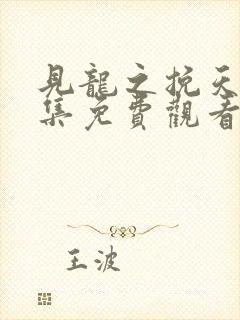 見龍之挽天
集免費觀看
王波